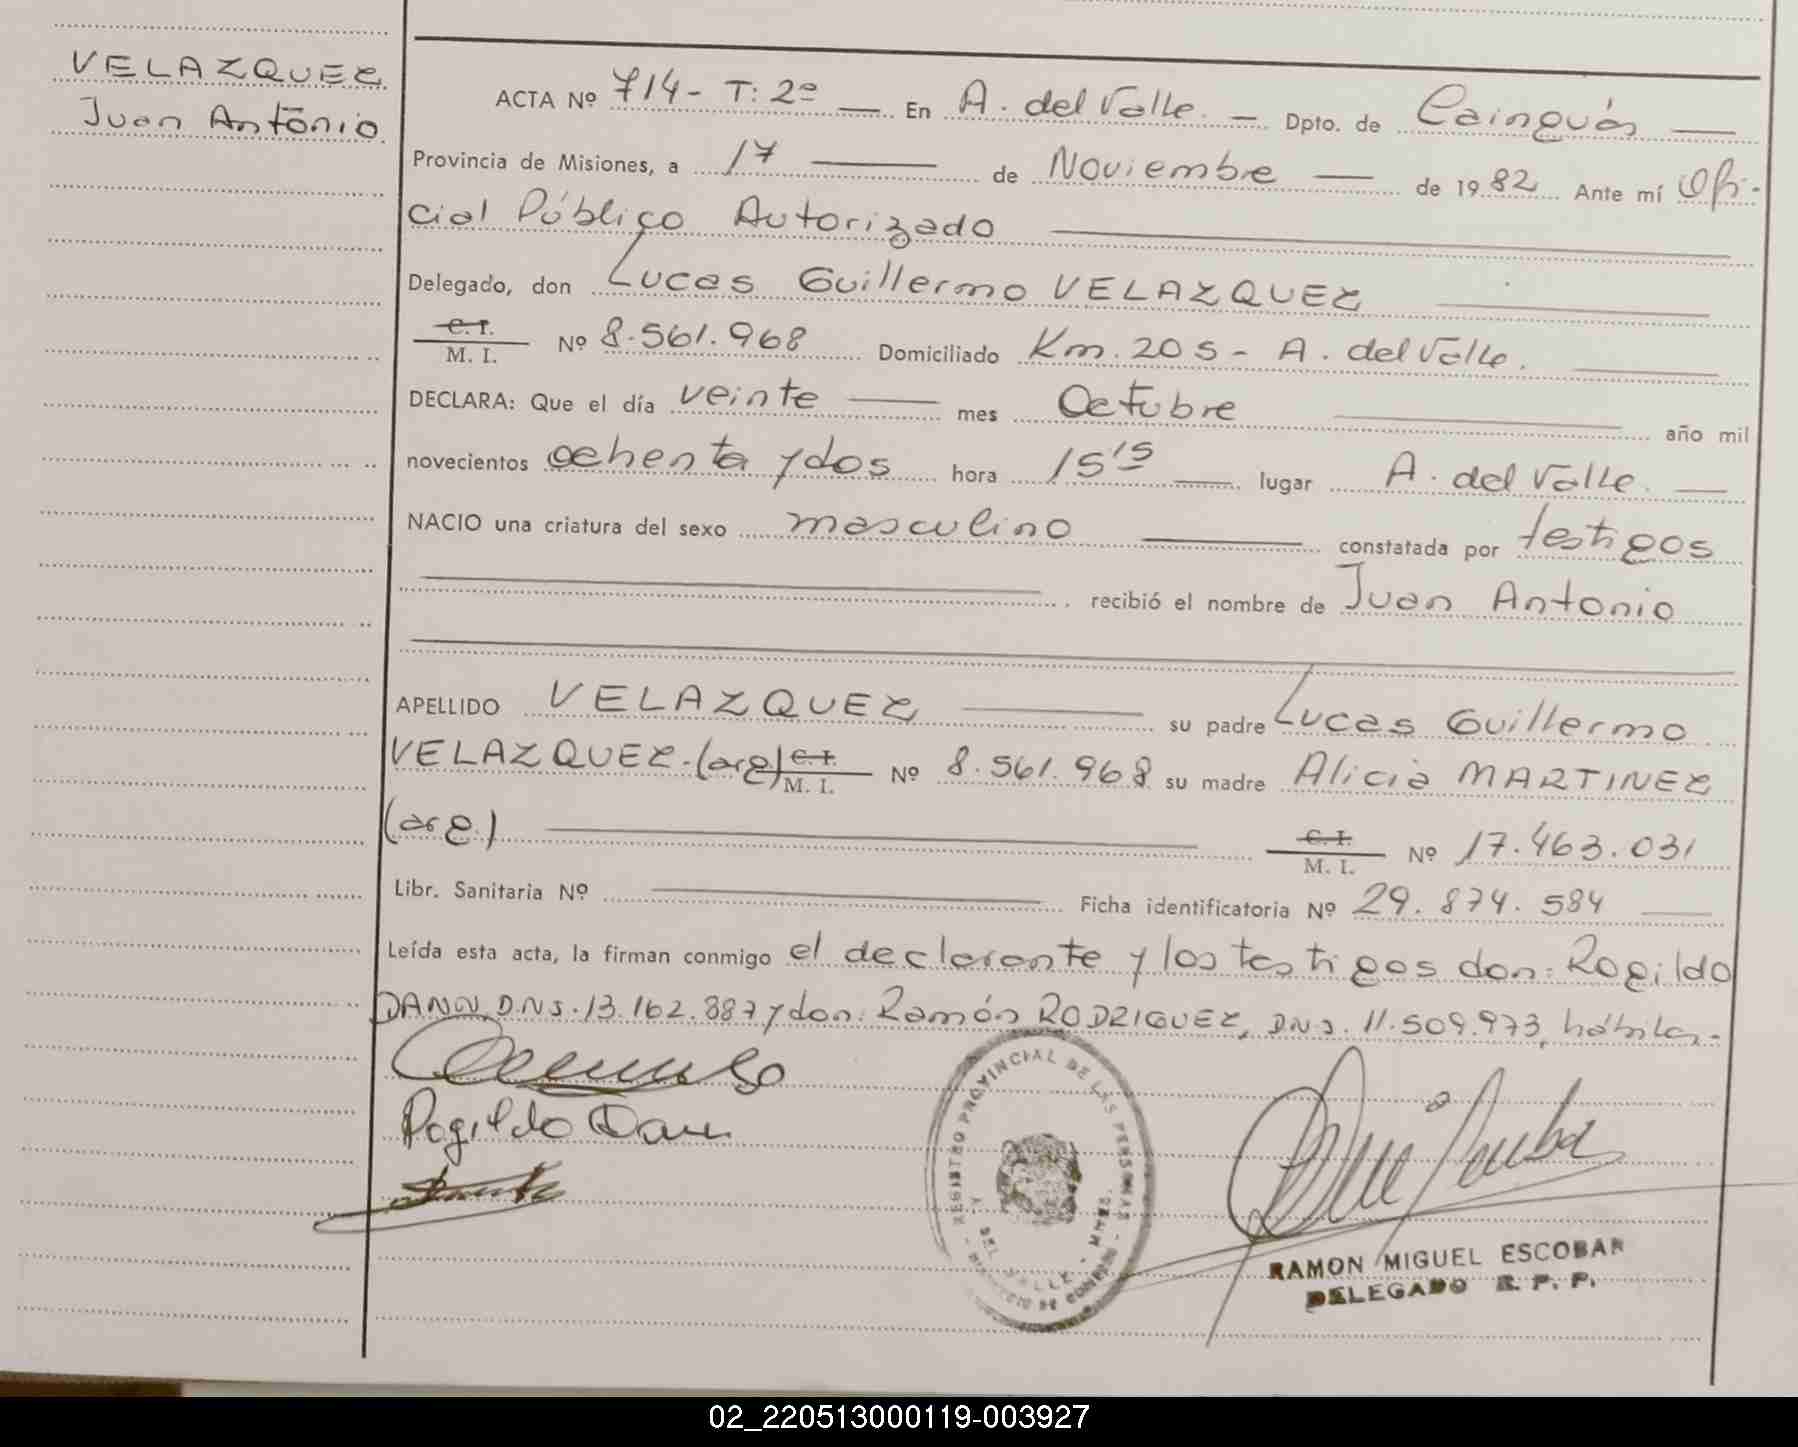 VELAZQUEZ
Juan Antonio
ACTA Nº 714 - T: 2º — En A. del Valle. — Dpto. de Cainguás —
Provincia de Misiones, a 17 — de Noviembre — de 1982 Ante mí Ofi-
cial Público Autorizado
Delegado, don Lucas Guillermo VELAZQUEZ
C. I.
M. I. Nº 8.561.968 Domiciliado Km. 205 - A. del Valle.
DECLARA: Que el día veinte — mes Octubre — año mil
novecientos ochenta y dos hora 15'15 — lugar A. del Valle. —
NACIO una criatura del sexo masculino — constatada por testigos
recibió el nombre de Juan Antonio
APELLIDO VELAZQUEZ — su padre Lucas Guillermo
VELAZQUEZ. (arg) C. I. M. I. Nº 8.561.968 su madre Alicia MARTINEZ
(arg.) — C. I. M. I. Nº 17.463.031
Libr. Sanitaria Nº — Ficha identificatoria Nº 29.874.584 —
Leída esta acta, la firman conmigo el declarante y los testigos don: Rogildo
DANN, D.N.I. 13.162.887 y don: Ramón RODRIGUEZ, D.N.I. 11.509.973, hábiles.-
Rogildo Dann
REGISTRO PROVINCIAL DE LAS PERSONAS
A. DEL VALLE - MNES.
RAMON MIGUEL ESCOBAR
DELEGADO R. P. P.
02_220513000119-003927